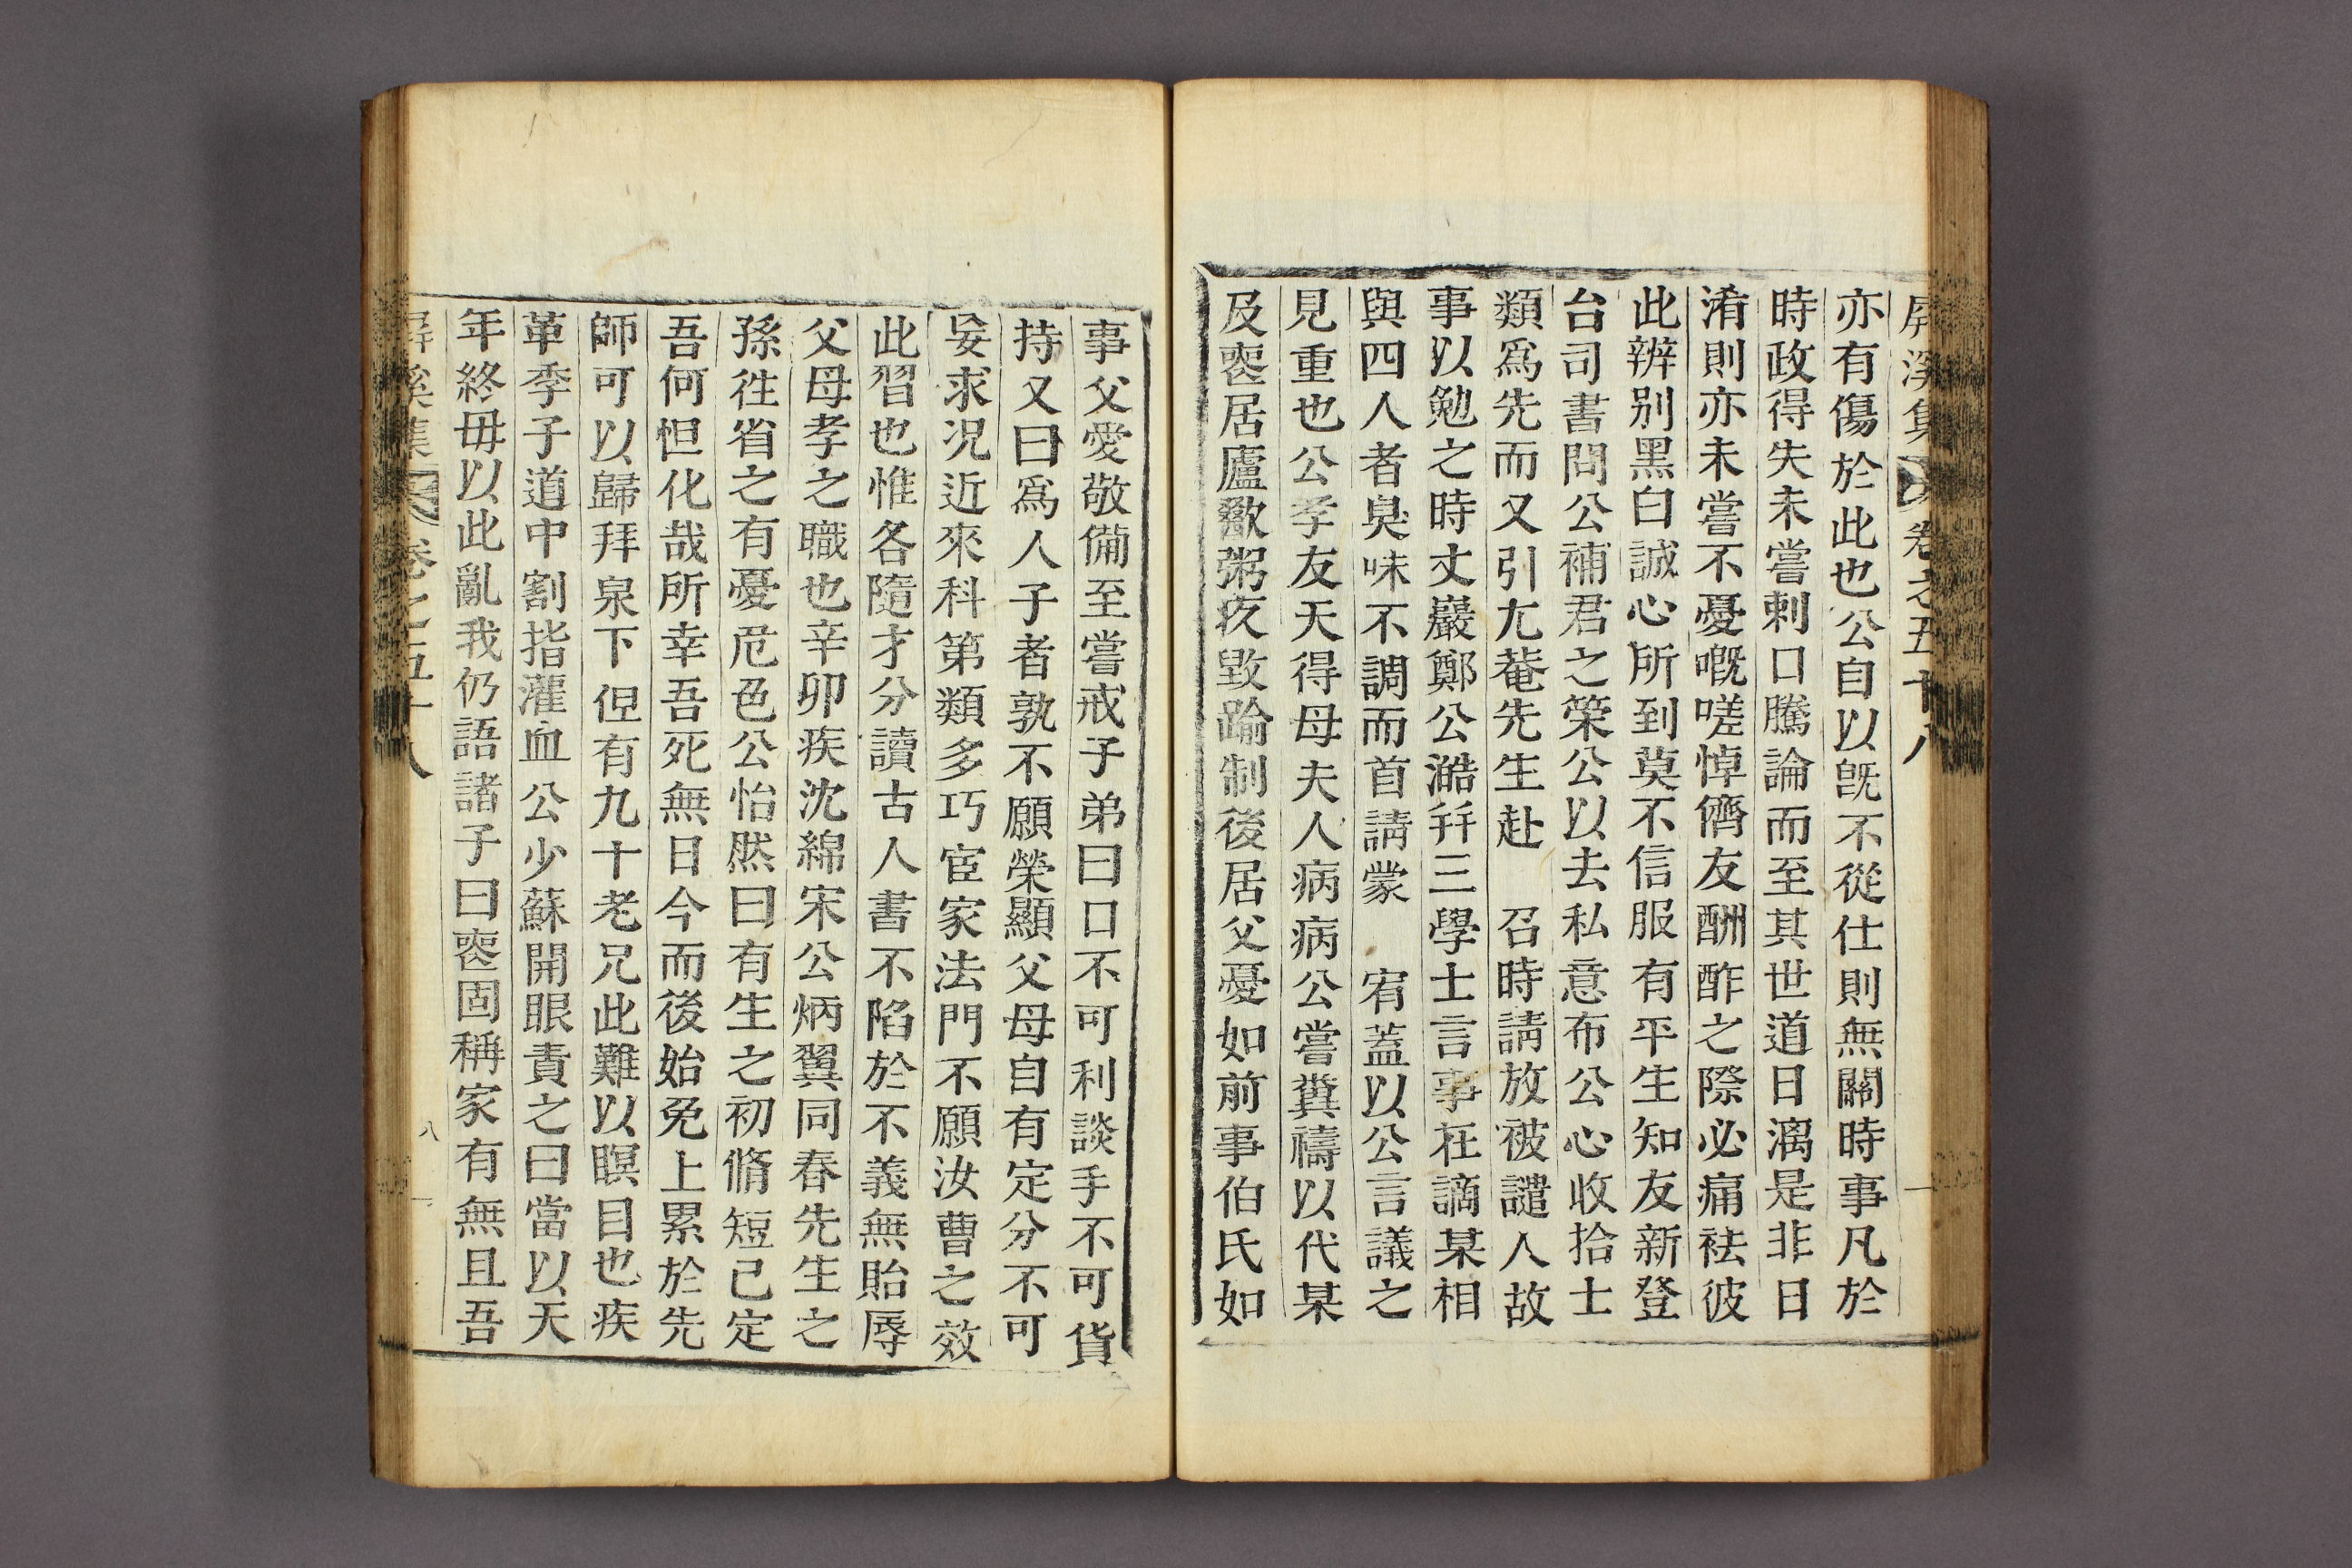 屛溪集 卷之五十八
亦有傷於此也公自以旣不從仕則無關時事凡於
時政得失未嘗刺口騰論而至其世道日漓是非日
淆則亦未嘗不憂嘅嗟悼儕友酬酢之際必痛祛彼
此辨别黑白誠心所到莫不信服有平生知友新登
台司書問公補君之策公以去私意布公心收拾士
類爲先而又引尤菴先生赴 召時請放被譴人故
事以勉之時丈巖鄭公澔秊三學士言事在謫某相
與四人者臭味不調而首請蒙 宥蓋以公言議之
見重也公孝友天得母夫人病病公嘗糞禱以代某
及喪居廬歠粥疚毀踰制後居父憂如前事伯氏如
事父愛敬備至嘗戒子弟曰口不可利談手不可貨
持又曰爲人子者孰不願榮顯父母自有定分不可
妄求况近來科第類多巧宦家法門不願汝曹之效
此習也惟各隨才分讀古人書不陷於不義無貽辱
父母孝之職也辛卯疾沈綿宋公炳翼同春先生之
孫徃省之有憂戹色公怡然曰有生之初脩短已定
吾何怛化哉所幸吾死無日今而後始免上累於先
師可以歸拜泉下但有九十老兄此難以瞑目也疾
革季子道中割指灌血公少蘇開眼責之曰當以天
年終毋以此亂我仍語諸子曰喪固稱家有無且吾
屛溪集 卷之五十八
八